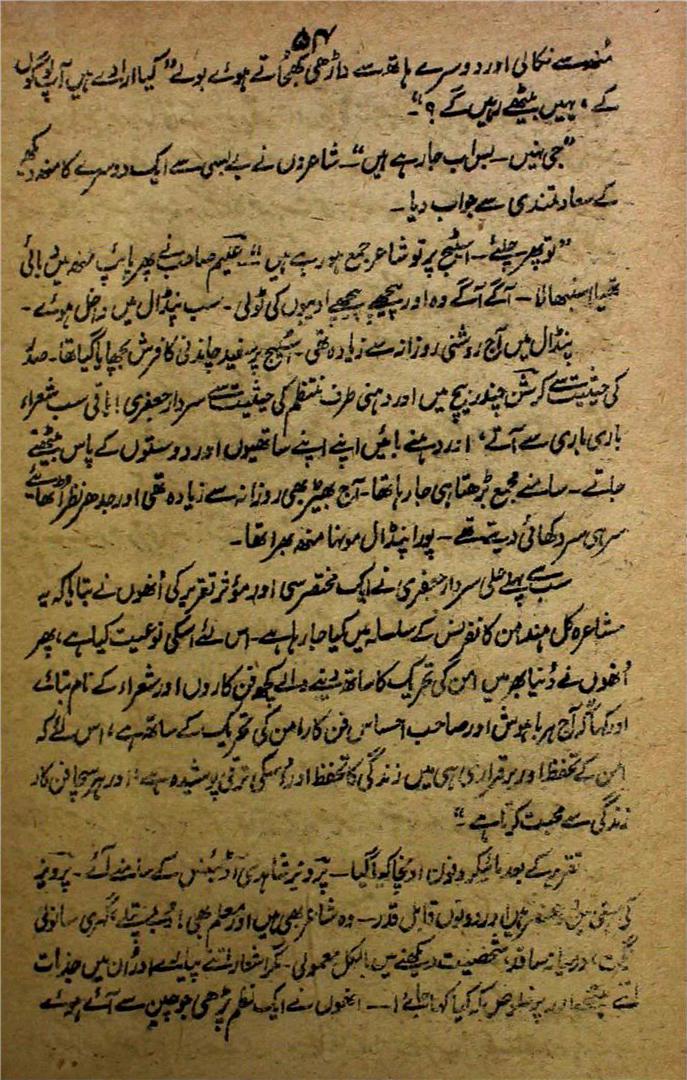 ۵۴
منھ سے نکالی اور دوسرے ہاتھ سے داڑھی کھجاتے ہوئے بولے "کیا ارادے ہیں آپ لوگوں
کے، یہیں بیٹھے رہیں گے؟"۔
"جی نہیں۔ بس اب جا رہے ہیں"۔ شاعروں نے بے بسی سے ایک دوسرے کا منھ دیکھ
کے سعادتمندی سے جواب دیا۔
"تو پھر چلئے۔ اسٹیج پر تو شاعر جمع ہو رہے ہیں"۔ علیم صاحب نے پھر پائپ منھ میں
سنبھالا۔ آگے آگے وہ اور پیچھے پیچھے ادیبوں کی ٹولی۔ سب پنڈال میں داخل ہوئے۔
پنڈال میں آج روشنی روزانہ سے زیادہ تھی۔ اسٹیج پر سفید چاندنی کا فرش بچھایا گیا تھا۔ صدر
کی حیثیت سے کرشن چندر بیچ میں اور دہنی طرف منتظم کی حیثیت سے سردار جعفری! باقی سب شعراء
باری باری سے آتے، اور دہنے بائیں اپنے اپنے ساتھیوں اور دوستوں کے پاس بیٹھتے
جاتے۔ سامنے مجمع بڑھتا ہی جا رہا تھا۔ آج بھیڑ بھی روزانہ سے زیادہ تھی اور جدھر نظر اٹھائیے
سر ہی سر دکھائی دیتے تھے۔ پورا پنڈال مونہا منھ بھرا تھا۔
سب سے پہلے علی سردار جعفری نے ایک مختصر سی اور مؤثر تقریر کی اُنھوں نے بتایا کہ یہ
مشاعرہ کل ہند امن کانفرنس کے سلسلہ میں کیا جا رہا ہے۔ اس لئے اسکی نوعیت کیا ہے، پھر
اُنھوں نے دُنیا بھر میں امن کی تحریک کا ساتھ دینے والے کچھ فن کاروں اور شعراء کے نام بتائے
اور کہا کہ آج ہر باہوش اور صاحب احساس فن کار امن کی تحریک کے ساتھ ہے، اس لئے کہ
امن کے تحفظ اور برقراری ہی میں زندگی کا تحفظ اور اُسکی ترقی پوشیدہ ہے، اور ہر سچا فن کار
زندگی سے محبت کرتا ہے۔"
تقریر کے بعد مائیکروفون اونچا کیا گیا۔ پرویز شاہدی آڈینس کے سامنے آئے۔ پرویز
کی اور دونوں قابل قدر۔ وہ شاعر بھی ہیں اور معلم بھی! دُبلے پتلے، گہری سانولی
رنگت، درمیانہ قد، شخصیت دیکھنے میں بالکل معمولی۔ مگر اشعار اتنے پیارے اور اُن میں جذبات
اتنے سچے اور پر خلوص کہ کیا کہا جائے!۔ انھوں نے ایک نظم پڑھی جو چین سے آئے ہوئے